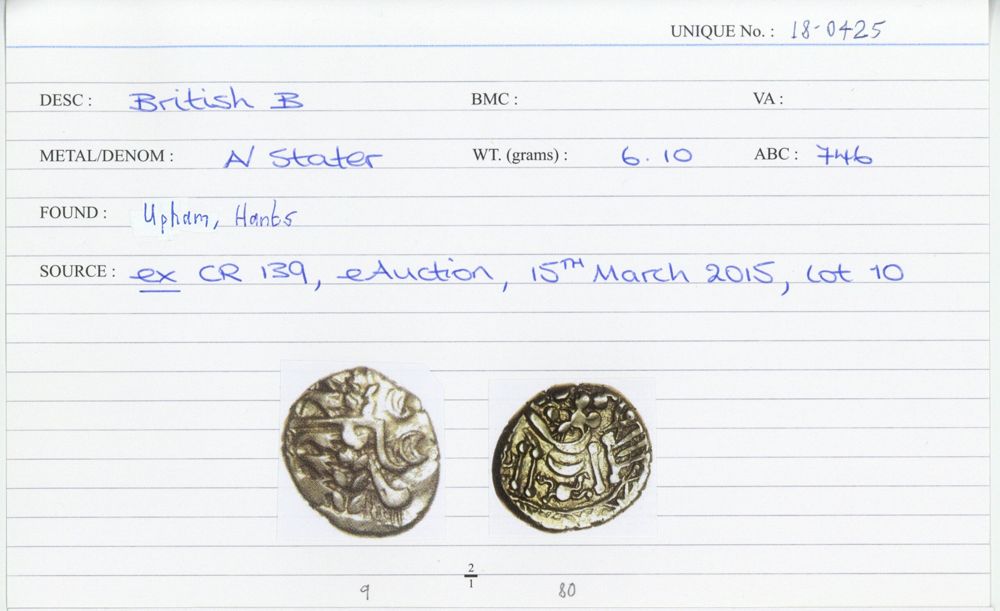 UNIQUE No. : 18-0425
DESC : British B BMC : VA :
METAL/DENOM : A/ Stater WT. (grams) : 6.10 ABC : 746
FOUND : Upham, Hants
SOURCE : ex CR 139, eAuction, 15TH March 2015, Lot 10
2
1
9 80